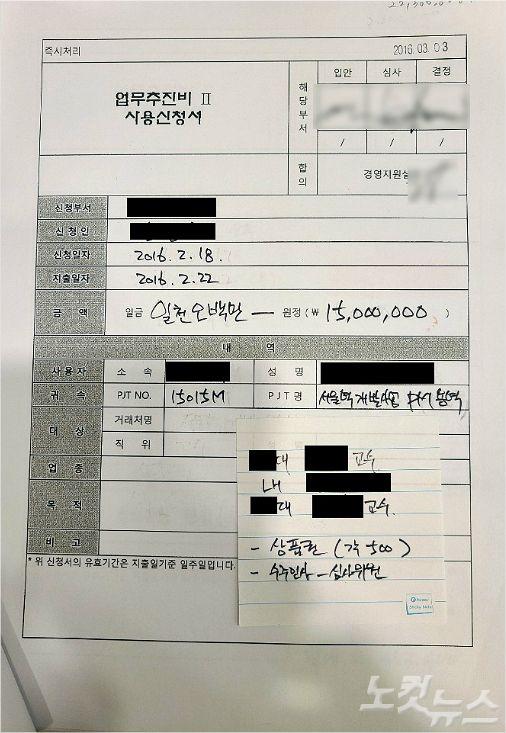 즉시처리 2016.03.03
업무추진비 Ⅱ
사용신청서
해당부서
입안 심사 결정
/ / /
합의
경영지원실
신청부서
신청인
신청일자 2016. 2. 18.
지출일자 2016. 2. 22
금액 일금 일천오백만 — 원정 (₩ 15,000,000 )
내역
사용자 소속 성명
귀속 PJT NO. 15015M PJT 명
대상 거래처명
직위
업종
목적
비고
* 위 신청서의 유효기간은 지출일기준 일주일입니다.
대 교수
LH
대 교수.
- 상품권 (각 500)
- 수주인사 - 심사위원
Sticky Note
노컷뉴스